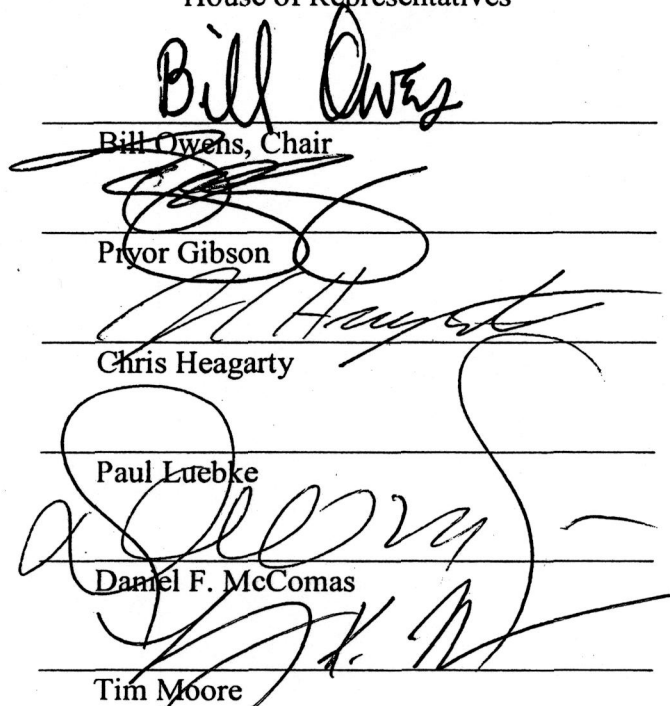 House of Representatives
Bill Owens
Bill Owens, Chair
Pryor Gibson
Chris Heagarty
Paul Luebke
Daniel F. McComas
Tim Moore